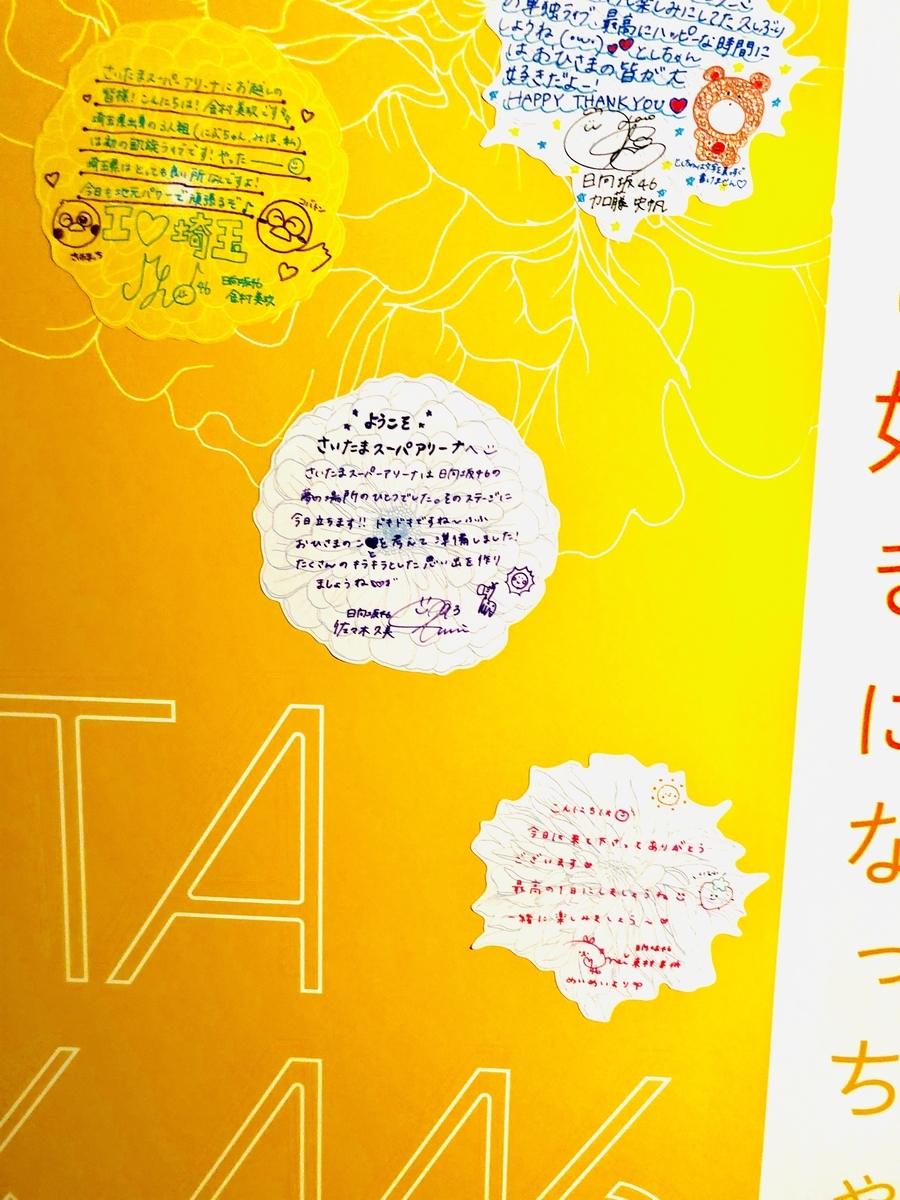 さいたまスーパーアリーナにお越しの
皆様！こんにちは！金村美玖です
埼玉県出身の3人組（にぶちゃん、みほ、私）
は初の凱旋ライブです！やったー
埼玉県はとっても良い所なんですよ！
今日も地元パワーで頑張るぞ
コバトン
さいたまっち
I♡埼玉
46
日向坂46
金村美玖
楽しみにしてた久しぶり
の単独ライブ、最高にハッピーな時間に
しましょうね
としちゃん
はおひさまの皆が大
好きだよー！
HAPPY THANKYOU♥
日向坂46
加藤史帆
ようこそ
さいたまスーパアリーナへ
さいたまスーパーアリーナは日向坂46の
夢の場所のひとつでした。そのステージに
今日立ちます!! ドキドキですね〜ふふ
おひさまのこと♥を考えて準備しました！
たくさんのキラキラとした思い出を作り
ましょうね
日向坂46
佐々木久美
こんにちは
今日は来て下さってありがとう
ございます♥
最高の1日にしましょうね
一緒に楽しみましょう〜♡
日向坂46
東村芽依
めいめいより
TA
好きになっちゃ